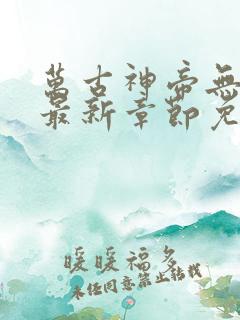 萬古神帝無
最新章節免
暖暖福多
未经同意禁止转载